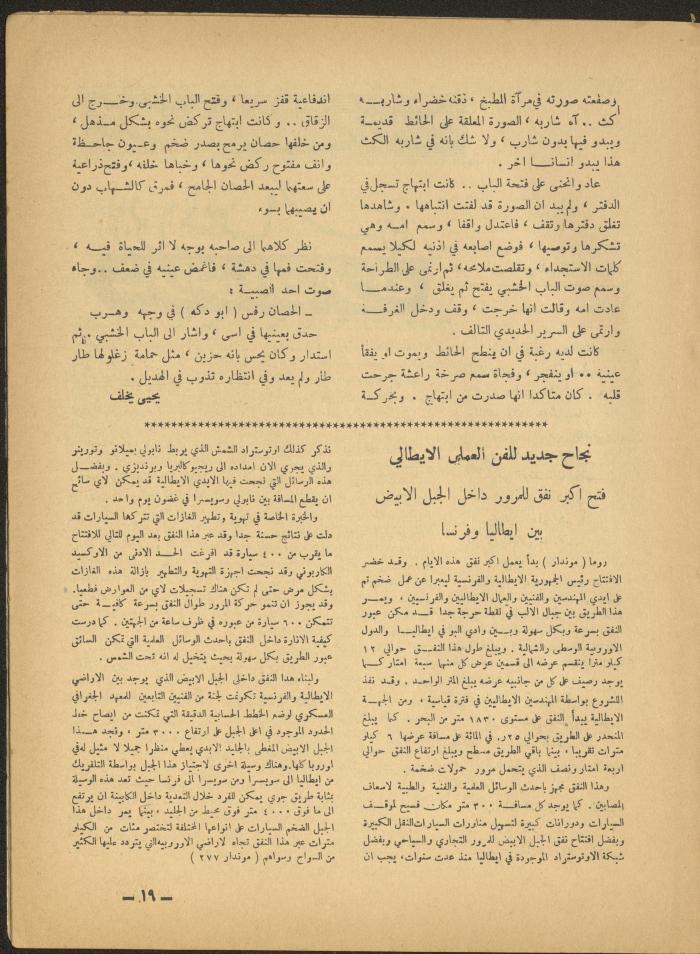 وصفعته صورته في مرآة المطبخ ، ذقنه خضراء وشاربه
كث .. آه شاربه ، الصورة المعلقة على الحائط قديمة
ويبدو فيها بدون شارب ، ولا شك بانه في شاربه الكث
هذا يبدو انسانا اخر .
عاد وانحنى على فتحة الباب .. كانت ابتهاج تسجل في
الدفتر ، ولم يبد ان الصورة قد لفتت انتباهها . وشاهدها
تغلق دفترها وتقف ، فاعتدل واقفا ، وسمع امه وهي
تشكرها وتوصيها ، فوضع اصابعه في اذنيه لكيلا يسمع
كلمات الاستجداء ، وتقلصت ملامحه، ثم ارتمى على الطراحة
وسمع صوت الباب الخشبي يفتح ثم يغلق ، وعندما
عادت امه وقالت انها خرجت ، وقف ودخل الغرفة
وارتمى على السرير الحديدي التالف .
كانت لديه رغبة في ان ينطح الحائط ويموت او يفقأ
عينيه .. او ينفجر ، وفجاة سمع صرخة راعشة جرحت
قلبه . كان متاكدا انها صدرت من ابتهاج . وبحركة
اندفاعية قفز سريعا ، وفتح الباب الخشبي وخرج الى
الزقاق .. وكانت ابتهاج تركض نحوه بشكل مذهل ،
ومن خلفها حصان يرمح بصدر ضخم وعيون جاحظة
وانف مفتوح ركض نحوها ، وخباها خلفه ، وفتح ذراعية
على سعتهما ليبعد الحصان الجامح ، فمرق كالشهاب دون
ان يصيبهما بسوء
نظر كلاهما الى صاحبه بوجه لا اثر للحياة فيه ،
وفتحت فمها في دهشة ، فاغمض عينيه في ضعف .. وجاء
صوت احد الصبية :
ـ الحصان رفس ( ابو دكه ) في وجهه وهرب
حدق بعينيها في اسى ، واشار الى الباب الخشبي .. ثم
استدار وكان يحس بانه حزين ، مثل حمامة زغلولها طار
طار ولم يعد وفي انتظاره تذوب في الهديل .
يحيى يخلف
************************************************************
نجاح جديد للفن العملي الايطالي
فتح اكبر نفق للمرور داخل الجبل الابيض
بين إيطاليا وفرنسا
روما ( موندار ) بدأ يعمل اكبر نفق هذه الايام . وقد حضر
الافتتاح رئيس الجمهورية الايطالية والفرنسية ليعبرا عن عمل ضخم تم
على ايدي المهندسين والفنيين والعمال الايطاليين والفرنسيين ، ويمر
هذا الطريق بين جبال الالب في نقطة حرجة جدا قد مكن عبور
النفق بسرعة وبكل سهولة وبين وادي البو في ايطاليا والدول
الاوروبية الوسطى والشمالية . ويبلغ طول هذا النفق حوالي ١٢
كيلو مترا ينقسم عرضه الى قسمين عرض كل منهما سبعة امتار كما
يوجد رصيف على كل من جانبيه عرضه يبلغ المتر الواحد . وقد نفذ
المشروع بواسطة المهندسين الايطاليين في فترة قياسية ، ومن الجهة
الايطالية يبدأ النفق على مستوى ١٨٣٠ متر من البحر . كما يبلغ
المنحدر على الطريق بحوالي ٢٥ر. في المائة على مسافة عرضها ٦ كيلو
مترات تقريبا ، بينما باقي الطريق مسطح ويبلغ ارتفاع النفق حوالي
اربعة امتار ونصف الذي يتحمل مرور حمولات ضخمة .
وهذا النفق مجهز باحدث الوسائل العلمية والفنية والطبية لاسعاف
المصابين . كما يوجد كل مسافة ٣٠٠ متر مكان فسيح لموقف
السيارات ودورانات كبيرة لتسهيل مناورات السيارات النقل الكبيرة
وبفضل افتتاح نفق الجبل الابيض للمرور التجاري والسياحي وبفضل
شبكة الاوتوستراد الموجودة في ايطاليا منذ عدت سنوات، يجب ان
تذكر كذلك اوتوستراد الشمش الذي يوبط نابولي بميلانو وتورينو
والذي يجري الان امداده الى ريجيوكالبريا وبرنديزي . وبفضل
هذه الرسائل التي نجحت فيها الايدي الايطالية قد يمكن لاي سائح
ان يقطع المسافة بين نابولي وسويسرا في غضون يوم واحد .
والخبرة الخاصة في تهوية وتطهير الغازات التي تتركها السيارات قد
دلت على نتائج حسنة جدا وقد عبر هذا النفق بعد اليوم للتالي للافتتاح
ما يقرب من ٤٠٠ سيارة قد افرغت الحد الادنى من الاوكسيد
الكاربوني وقد نجحت اجهزة التهوية والتطهير بازالة هذه الغازات
بشكل مرض حتى لم تكن هناك تسجيلات لاي من العوارض قطعيا.
وقد يجوز ان تنمو حركة المرور طوال النفق بسرعة كافية حتى
تتمكن ٦٠٠ سيارة من عبوره في ظرف ساعة من الجهتين . كما درست
كيفية الانارة داخل النفق باحدث الوسائل العلمية التي تمكن السائق
عبور الطريق بكل سهولة بحيث يتخيل له انه تحت الشمس .
ولبناء هذا النفق داخلي الجبل الابيض الذي يوجد بين الاراضي
الايطالية والفرنسية تكونت لجنة من الفنيين التابعين للمعهد الجغرافي
العسكري لوضع الخطط الحسابية الدقيقة التي تمكنت من ايصاح خط
الحدود الموجود في اعلى الجبل على ارتفاع ٣٠٠٠ متر . وتجد هذا
الجبل الابيض المغطى بالجليد الابدي يعطي منظرا جميلا لا مثيل له في
اوروبا كلها.وهناك وسيلة اخرى لاجتياز هذا الجبل بواسطة التلفريك
من إيطاليا الى سويسرا ومن سويسرا الى فرنسا حيث تعد هذه الوسيلة
بثابة طريق جوي يمكن للفرد خلال التعدية داخل الكابينة ان يرتفع
الى ما فوق ٤٠٠٠ متر فوق محيط من الجليد ، بينما يمر داخل هذا
الجبل الضخم السيارات على انواعها المختلفة لتختصر مئات من الكيلو
مترات عبر هذا النفق تجاه لاراضي الاوروبيه التي يتردد عليها الكثير
من السواح وسواهم ( موندار ٢٧٧ )
ـ ١٩ ـ